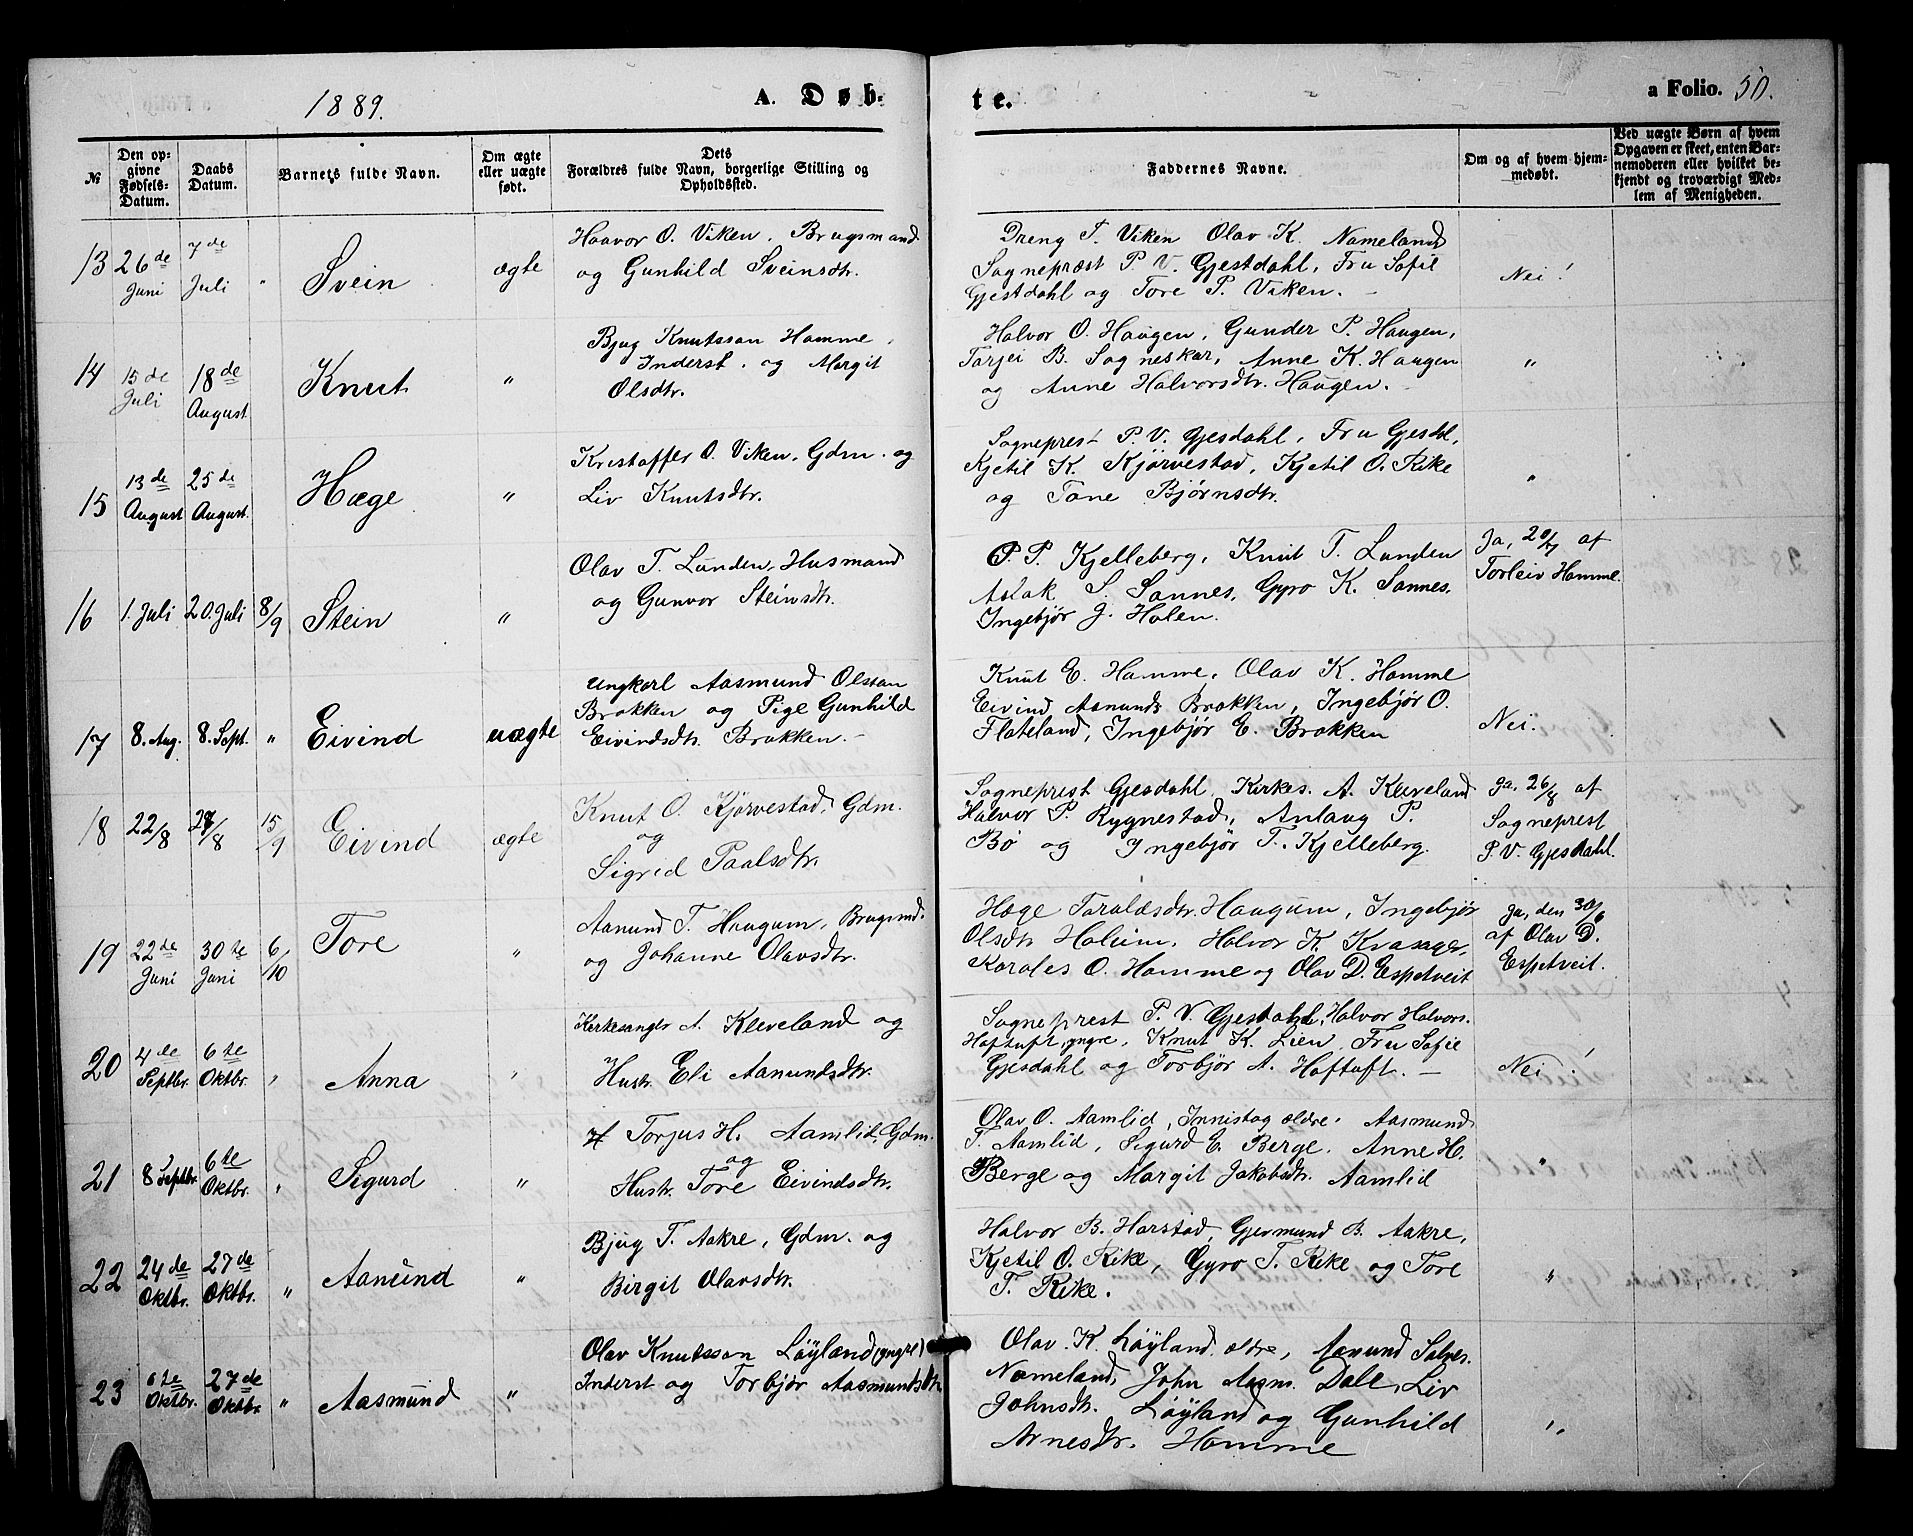 1889.
A. Døb-
te.
a Folio. 50.
№
Den op-
givne
Fødsels-
Datum.
Daabs
Datum.
Barnets fulde Navn.
Om ægte
eller uægte
født.
Dets
Forældres fulde Navn, borgerlige Stilling og
Opholdssted.
Faddernes Navne.
Om og af hvem hjem-
medøbt.
Ved uægte Børn af hvem
Opgaven er skeet, enten Bar-
nemoderen eller hvilket be-
kjendt og troværdigt Med-
lem af Menigheden.
13 26de Juni
7de Juli
"
Svein
ægte
Haavor O. Viken, Brugsmand
og Gunhild Sveinsdtr.
Dreng T. Viken Olav K. Nomeland
Sogneprest P. V. Gjestdahl, Fru Sofie
Gjestdahl og Tore P. Viken. –
Nei!
14 15de Juli
18de August
Knut
"
Bjug Knutsson Homme,
Inderst. og Margit
Olsdtr.
Halvor O. Haugen, Gunder P. Haugen,
Tarjei B. Sogneskar, Anne K. Haugen
og Anne Halvorsdtr. Haugen. –
"
15 13de August
25de August.
Hæge
"
Kristoffer O. Viken, Gdm. og
Liv Knutsdtr.
Sogneprest P. V. Gjesdahl, Fru Gjesdl,
Kjetil K. Kjørvestad, Kjetil O. Rike
og Tone Bjørnsdtr.
"
16 1. Juli 20. Juli 8/9
Stein
"
Olav T. Lunden, Husmand
og Gunvor Steinsdtr.
P. P. Kjelleberg, Knut T. Lunden
Aslak S. Sannes, Gyro K. Sannes,
Ingebjør J. Holen.
Ja, 20/7 af
Torleiv Homme.
17 8. Aug. 8. Sept. "
Eivind
uægte
Ungkarl Aasmund Olson
Brokken og Pige Gunhild
Eivindsdtr. Brokken. –
Knut E. Homme, Olav K. Homme
Eivind Asmunds Brokken, Ingebjør O.
Flateland, Ingebjør E. Brokken
Nei.
18 22/8 27/8 15/9
Eivind
ægte
Knut O. Kjørvestad, Gdm.
og
Sigrid Paalsdtr.
Sogneprest Gjesdahl, Kirkes. A. Kleveland
Halvor P. Rygnestad, Anlaug P.
Bø og Ingebjør T. Kjelleberg.
Ja, 26/8 af
Sogneprest
P. V. Gjesdahl.
19 22de Juni
30te Juni
6/10
Tore
"
Aanund T. Haugum, Brugsmd.
og Johanne Olavsdtr.
Hæge Taraldsdtr. Haugum, Ingebjør
Olsdtr Holum, Halvor K. Kvasager,
Karoles O. Homme og Olav D. Espetveit
Ja, den 30/6
af Olav D.
Espetveit.
20 4de Septbr.
6te Oktbr.
"
Anna
"
Kirkesanger A. Kleveland og
Hustr. Eli Aanundsdtr.
Sogneprest P. V. Gjesdahl, Halvor Halvors.
Hoftuft, yngre, Knut K. Lien, Fru Sofie
Gjesdahl og Torbjør A. Hoftuft. –
Nei!
21 8 Septbr.
6te Oktbr.
"
Sigurd
"
Torjus H. Aamlid, Gdm.
og
Hustr. Tore Eivindsdtr.
Olav O. Aamlid, Innistog ældre, Aasmund
T. Aamlid, Sigurd E. Berge, Anne H.
Berge og Margit Jakobsdtr. Aamlid
"
22 24de Oktbr.
27de Oktbr.
"
Aanund
"
Bjug T. Aakre, Gdm. og
Birgit Olavsdtr.
Halvor B. Harstad, Gjermund B. Aakre,
Kjetil O. Rike, Gyro T. Rike og Tore
T. Rike.
"
23 6te Oktbr.
27de Oktbr.
"
Aasmund
"
Olav Knutsson Løyland (yngre)
Inderst og Torbjør Aasmundsdtr.
Olav K. Løyland ældre, Aanund Salves.
Nomeland, John Aasm. Dale, Liv
Johnsdtr. Løyland og Gunhild
Arnesdtr. Homme
"